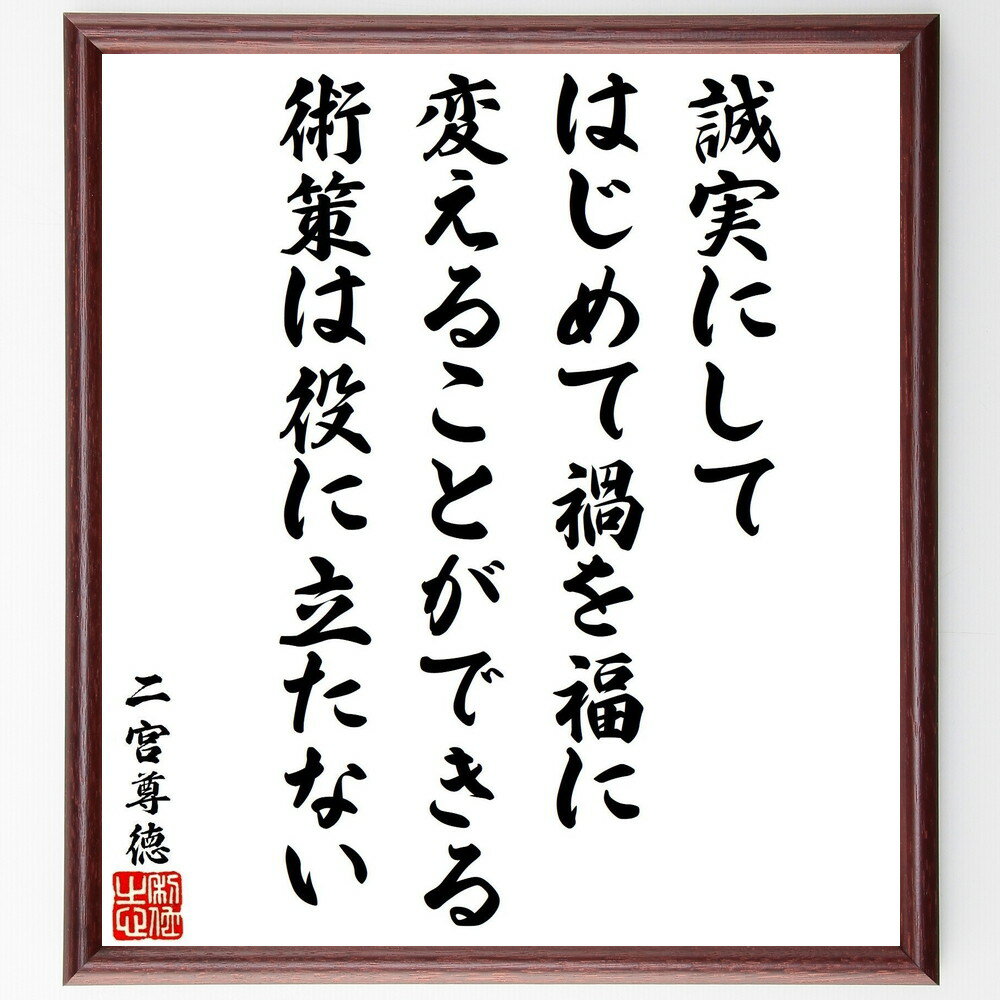 誠実にして
はじめて禍を福に
変えることができる
術策は役に立たない
二宮尊徳